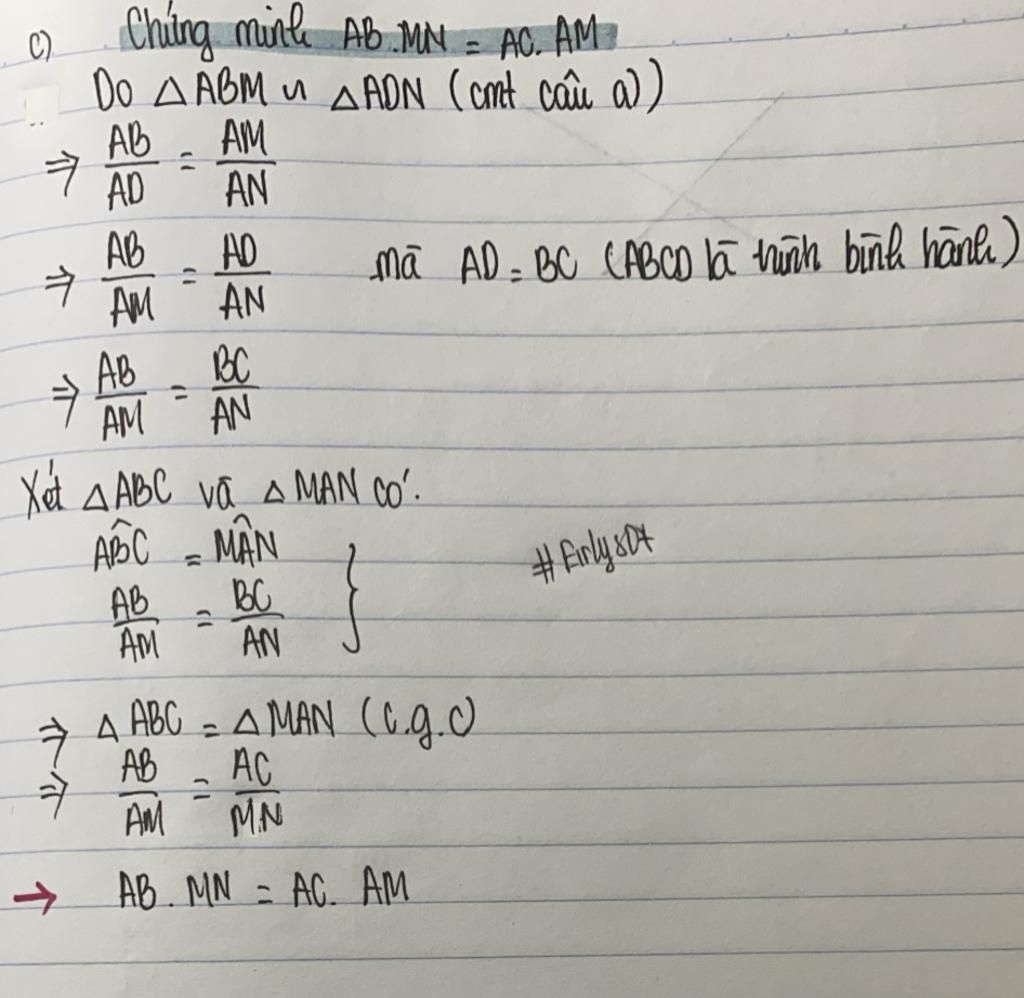 c) Chứng minh AB.MN = AC. AM
Do △ABM ∽ △ADN (cmt câu a))
⇒ AB/AD = AM/AN
⇒ AB/AM = AD/AN mà AD = BC (ABCD là hình bình hành)
⇒ AB/AM = BC/AN
Xét △ABC và △MAN có:
ABC̑ = MAN̑
AB/AM = BC/AN }
⇒ △ABC = △MAN (c.g.c)
⇒ AB/AM = AC/MN
→ AB. MN = AC. AM